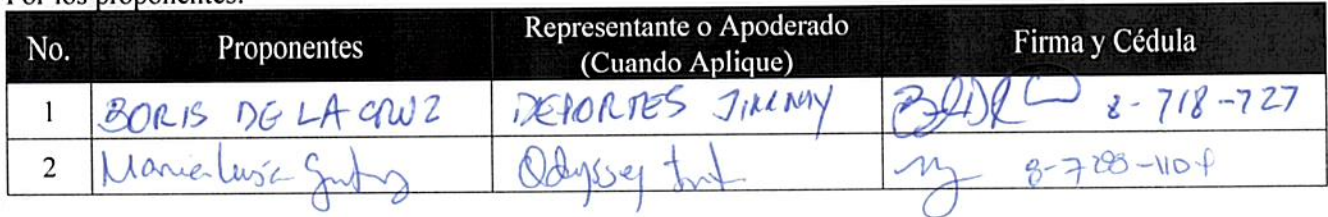 Por los proponentes:
No. Proponentes Representante o Apoderado (Cuando Aplique) Firma y Cédula
1 BORIS DE LA CRUZ DEPORTES JIMMY 8-718-727
2 Maria Luisa Odyssey